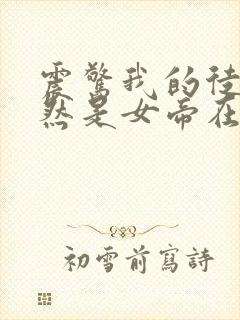 震驚我的徒
然是女帝在
初雪前寫詩